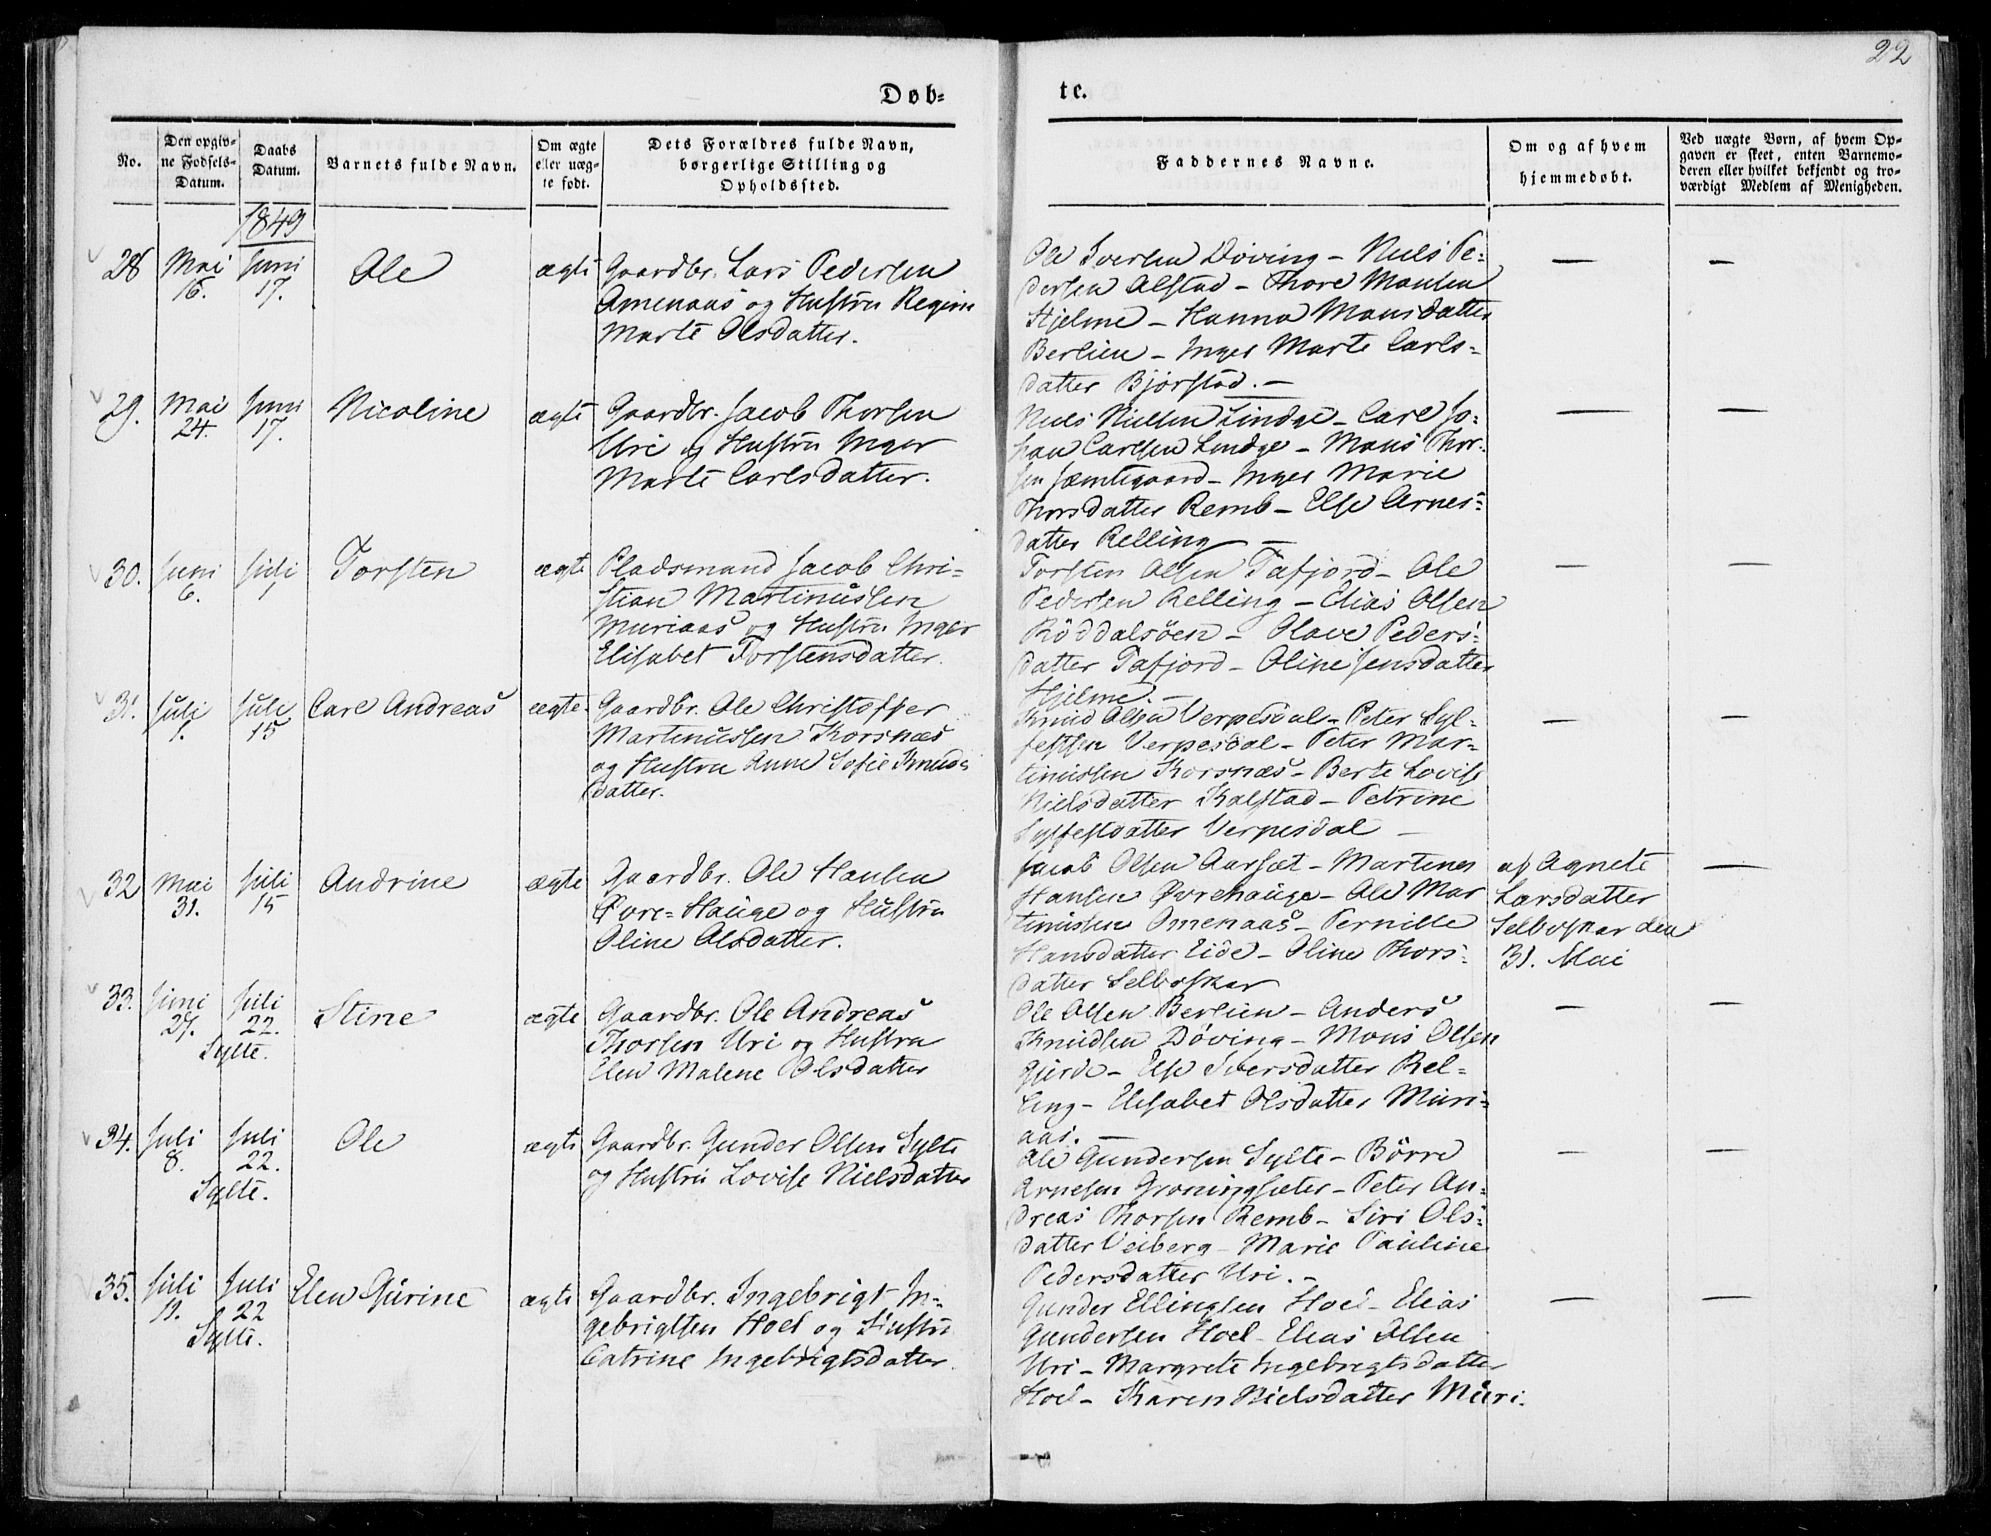 22
Døb-
te.
No.
Den opgiv-
ne Fødsels-
Datum.
Daabs
Datum.
Barnets fulde Navn.
Om ægte
eller uæg-
te født.
Dets Forældres fulde Navn,
borgerlige Stilling og
Opholdssted.
Faddernes Navne.
Om og af hvem
hjemmedøbt.
Ved uægte Børn, af hvem Op-
gaven er skeet, enten Barnemo-
deren eller hvilket bekjendt og tro-
værdigt Medlem af Menigheden.
1849
28 Mai 16. Juni 17. Ole ægte
Gaardbr. Lars Pedersen
Amenaas og Hustru Regine
Marte Olsdatter.
Ole Iversen Døving - Niels Pe-
dersen Alstad - Thore Monsen
Hjelme - Hanna Monsdatter
Berlien - Inger Marte Carls-
datter Bjørstad. -
— —
29. Mai 24. Juni 17. Nicoline ægte
Gaardbr. Jacob Thorsen
Uri og Hustru Inger
Marte Carlsdatter.
Niels Nielsen Lindge - Carl Jo-
han Carlsen Lindge - Mons Thor-
sen Jæmtegaard - Inger Marie
Thorsdatter Remb - Else Arnes-
datter Relling -
— —
30. Juni 6. Juli 1 Torsten ægte
Pladsmand Jacob Chri-
stian Martinussen
Muriaas og Hustru Inger
Elisabet Torstensdatter.
Torsten Olsen Tafjord - Ole
Pedersen Relling - Elias Olsen
Røddalsøen - Olave Peders-
datter Tafjord - Oline Jensdatter
Hjelme. -
— —
31. Juli 1. Juli 15 Carl Andreas ægte
Gaardbr. Ole Christoffer
Martinussen Korsnæs
og Hustru Anne Sofie Knuds-
datter.
Knud Olsen Verpesdal - Peter Syl-
festsen Verpesdal - Peter Mar-
tinussen Korsnæs - Berte Lovise
Nielsdatter Kalstad - Petrine
Sylfestdatter Verpesdal -
— —
32 Mai 31. Juli 15 Andrine ægte
Gaardbr. Ole Hansen
Øvre-Hauge og Hustru
Oline Olsdatter.
Jacob Olsen Aarset - Martines
Hansen Øvrehauge - Ole Mar
tinussen Omenaas - Pernille
Hansdatter Eide - Oline Thors-
datter Selboskar
af Agnete
Larsdatter
Selboskar den
31. Mai
—
33. Juni 27. Juli 22. Stine ægte
Sylte.
Gaardbr. Ole Andreas
Thorsen Uri og Hustru
Elen Malene Olsdatter
Ole Olsen Berlien - Anders
Knudsen Døving - Mons Olsen
Gjerde - Else Iversdatter Rel-
ling - Elisabet Olsdatter Muri-
aas. -
— —
34. Juli 8. Juli 22. Ole ægte
Sylte.
Gaardbr. Gunder Olsen Sylte
og Hustru Lovise Nielsdatter
Ole Gundersen Sylte - Børre
Arnesen Groningsæter - Peter An-
dreas Thorsen Remb - Siri Ols-
datter Veiberg - Marie Pauline
Pedersdatter Uri. -
— —
35. Juli 11. Juli 22 Elen Gurine ægte
Sylte.
Gaardbr. Ingebrigt In-
gebrigtsen Hoel og Hustru
Catrine Ingebrigtsdatter.
Gunder Ellingsen Hoel - Elias
Gundersen Hoel - Elias Olsen
Uri - Margrete Ingebregtsdatter
Hoel - Karen Nielsdatter Muri.
— —